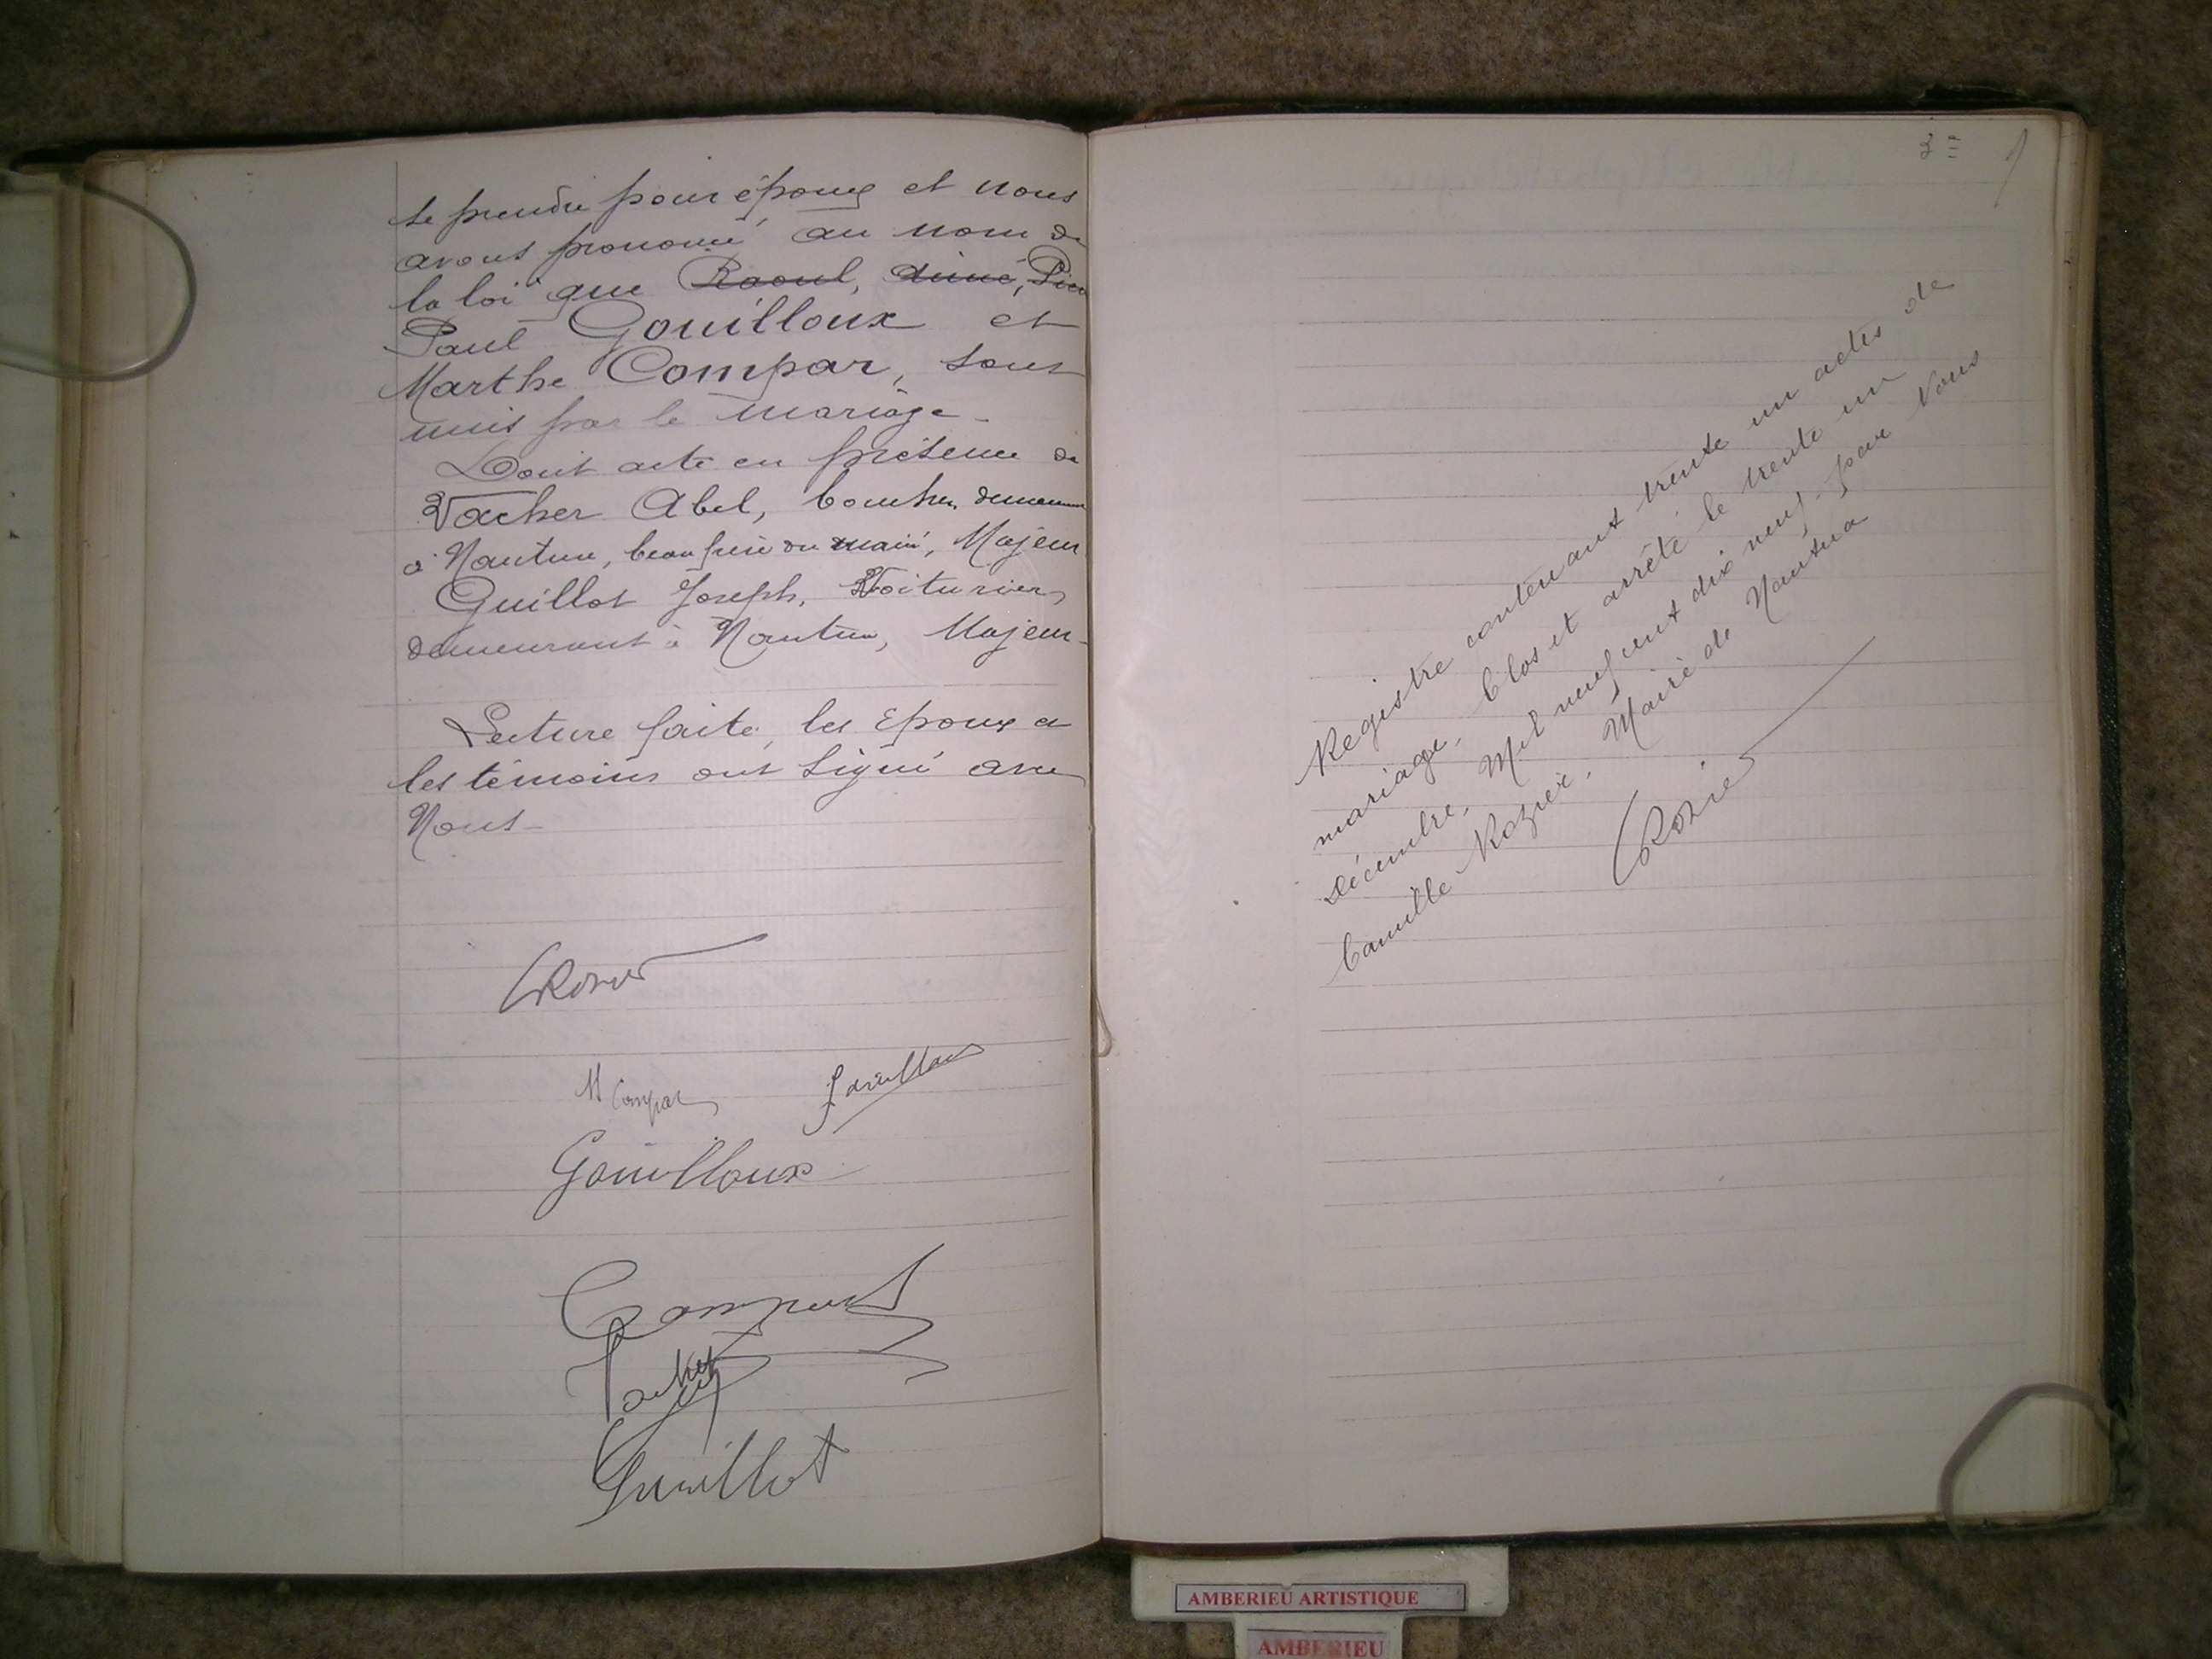 se prendre pour époux et nous
avons prononcé au nom de
la loi que Raoul, Aimé, Pier
Paul Gouilloux et
Marthe Compar, sont
unis par le mariage.
Dont acte en présence de
Vacher Abel, boucher, demeurant
à Nantua, beau frère du marié, Majeur
Guillot Joseph, Voiturier,
demeurant à Nantua, Majeur.
Lecture faite, les Epoux et
les témoins ont signé avec
Nous-
CRozier
M Compar
Gouilloux
Gouilloux
Compar
Vacher
Guillot
Registre contenant trente un actes de
mariage, Clos et arrêté le trente un
décembre, Mil neuf cent dix neuf par Nous
Camille Rozier, Maire de Nantua
CRozier
AMBERIEU ARTISTIQUE
AMBERIEU